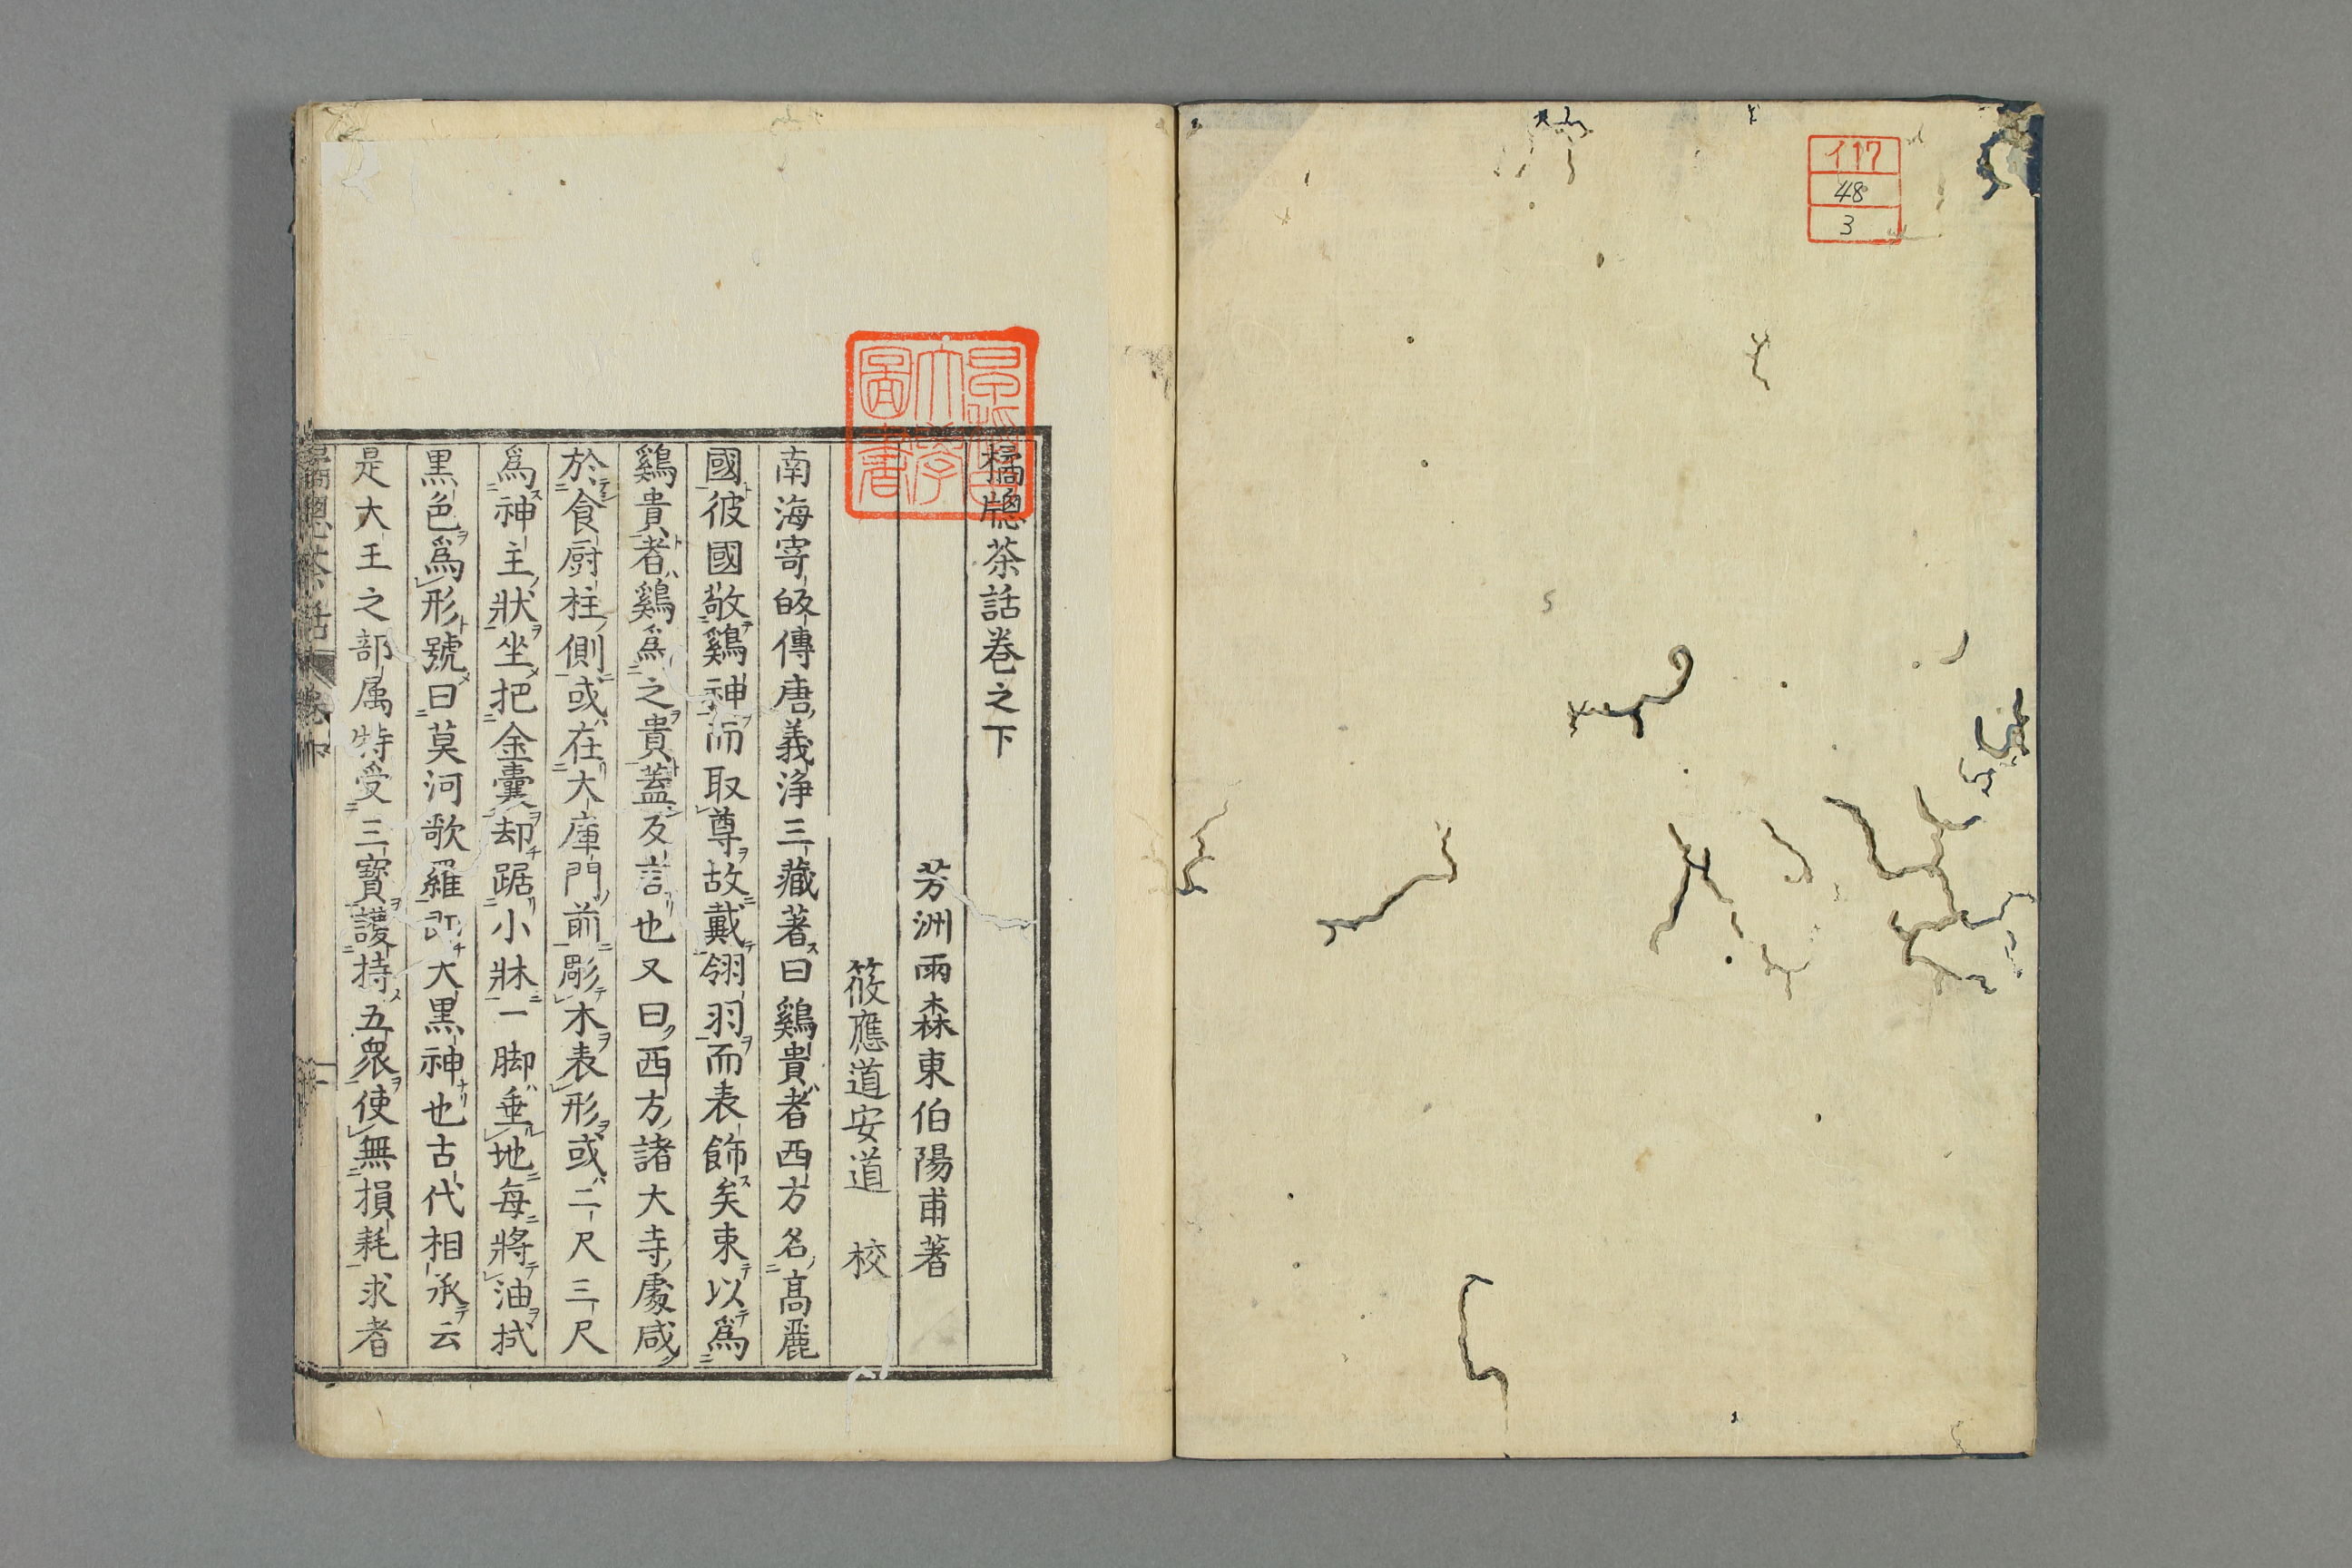 イ17
48
3
橘牕茶話卷之下
芳洲雨森東伯陽甫著
筱應道安道　校
南海寄皈傳唐義浄三藏著曰鷄貴者西方名高麗
國彼國敬鷄神而取尊故戴翎羽而表飾矣束以爲
鷄貴者鷄爲之貴蓋反言也又曰西方諸大寺處咸
於食厨柱側或在大庫門前彫木表形或二尺三尺
爲神主狀坐把金囊却踞小牀一脚垂地每將油拭
黒色爲形號曰莫河歌羅即大黒神也古代相承云
是大王之部属特受三寶護持五衆使無損耗求者